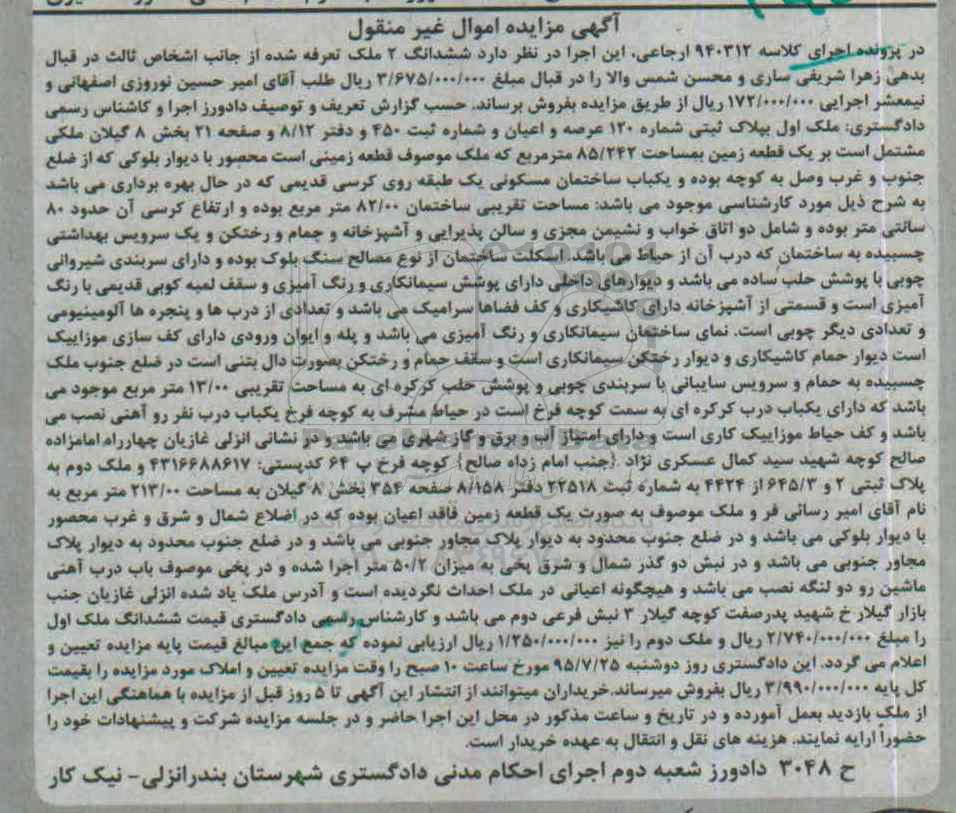 آگهی مزایده اموال غیر منقول
در پرونده اجرای کلاسه ۹۴۰۳۱۲ ارجاعی، این اجرا در نظر دارد ششدانگ ۲ ملک تعرفه شده از جانب اشخاص ثالث در قبال
بدهی زهرا شریفی ساری و محسن شمس والا را در قبال مبلغ ۳/۶۷۵/۰۰۰/۰۰۰ ریال طلب آقای امیر حسین نوروزی اصفهانی و
نیمعشر اجرایی ۱۷۲/۰۰۰/۰۰۰ ریال از طریق مزایده بفروش برساند. حسب گزارش تعریف و توصیف دادورز اجرا و کاشناس رسمی
دادگستری: ملک اول بپلاک ثبتی شماره ۱۲۰ عرصه و اعیان و شماره ثبت ۴۵۰ و دفتر ۸/۱۲ و صفحه ۲۱ بخش ۸ گیلان ملکی
مشتمل است بر یک قطعه زمین بمساحت ۸۵/۲۴۲ مترمربع که ملک موصوف قطعه زمینی است محصور با دیوار بلوکی که از ضلع
جنوب و غرب وصل به کوچه بوده و یکباب ساختمان مسکونی یک طبقه روی کرسی قدیمی که در حال بهره برداری می باشد
به شرح ذیل مورد کارشناسی موجود می باشد: مساحت تقریبی ساختمان ۸۲/۰۰ متر مربع بوده و ارتفاع کرسی آن حدود ۸۰
سانتی متر بوده و شامل دو اتاق خواب و نشیمن مجزی و سالن پذیرایی و آشپزخانه و حمام و رختکن و یک سرویس بهداشتی
چسبیده به ساختمان که درب آن از حیاط می باشد. اسکلت ساختمان از نوع مصالح سنگ بلوک بوده و دارای سربندی شیروانی
چوبی با پوشش حلب ساده می باشد و دیوارهای داخلی دارای پوشش سیمانکاری و رنگ آمیزی و سقف لمبه کوبی قدیمی با رنگ
آمیزی است و قسمتی از آشپزخانه دارای کاشیکاری و کف فضاها سرامیک می باشد و تعدادی از درب ها و پنجره ها آلومینیومی
و تعدادی دیگر چوبی است. نمای ساختمان سیمانکاری و رنگ آمیزی می باشد و پله و ایوان ورودی دارای کف سازی موزاییک
است دیوار حمام کاشیکاری و دیوار رختکن سیمانکاری است و سقف حمام و رختکن بصورت دال بتنی است در ضلع جنوب ملک
چسبیده به حمام و سرویس سایبانی با سربندی چوبی و پوشش حلب کرکره ای به مساحت تقریبی ۱۳/۰۰ متر مربع موجود می
باشد که دارای یکباب درب کرکره ای به سمت کوچه فرخ است در حیاط مشرف به کوچه فرخ یکباب درب نفر رو آهنی نصب می
باشد و کف حیاط موزاییک کاری است و دارای امتیاز آب و برق و گاز شهری می باشد و در نشانی انزلی غازیان چهارراه امامزاده
صالح کوچه شهید سید کمال عسکری نژاد {جنب امام زداه صالح} کوچه فرخ پ ۶۴ کدپستی: ۴۳۱۶۶۸۸۶۱۷ و ملک دوم به
پلاک ثبتی ۲ و ۶۴۵/۳ از ۴۴۲۴ به شماره ثبت ۲۲۵۱۸ دفتر ۸/۱۵۸ صفحه ۳۵۴ بخش ۸ گیلان به مساحت ۲۱۳/۰۰ متر مربع به
نام آقای امیر رسائی فر و ملک موصوف به صورت یک قطعه زمین فاقد اعیان بوده که در اضلاع شمال و شرق و غرب محصور
با دیوار بلوکی می باشد و در ضلع جنوب محدود به دیوار پلاک مجاور جنوبی می باشد و در ضلع جنوب محدود به دیوار پلاک
مجاور جنوبی می باشد و در نبش دو گذر شمال و شرق پخی به میزان ۵۰/۲ متر اجرا شده و در پخی موصوف باب درب آهنی
ماشین رو دو لنگه نصب می باشد و هیچگونه اعیانی در ملک احداث نگردیده است و آدرس ملک یاد شده انزلی غازیان جنب
بازار گیلار خ شهید پدرصفت کوچه گیلار ۳ نبش فرعی دوم می باشد و کارشناس رسمی دادگستری قیمت ششدانگ ملک اول
را مبلغ ۲/۷۴۰/۰۰۰/۰۰۰ ریال و ملک دوم را نیز ۱/۲۵۰/۰۰۰/۰۰۰ ریال ارزیابی نموده که جمع این مبالغ قیمت پایه مزایده تعیین و
اعلام می گردد. این دادگستری روز دوشنبه ۹۵/۷/۲۵ مورخ ساعت ۱۰ صبح را وقت مزایده تعیین و املاک مورد مزایده را بقیمت
کل پایه ۳/۹۹۰/۰۰۰/۰۰۰ ریال بفروش میرساند.خریداران میتوانند از انتشار این آگهی تا ۵ روز قبل از مزایده با هماهنگی این اجرا
از ملک بازدید بعمل آمورده و در تاریخ و ساعت مذکور در محل این اجرا حاضر و در جلسه مزایده شرکت و پیشنهادات خود را
حضوراً ارایه نمایند. هزینه های نقل و انتقال به عهده خریدار است.
ح ۳۰۴۸ دادورز شعبه دوم اجرای احکام مدنی دادگستری شهرستان بندرانزلی- نیک کار